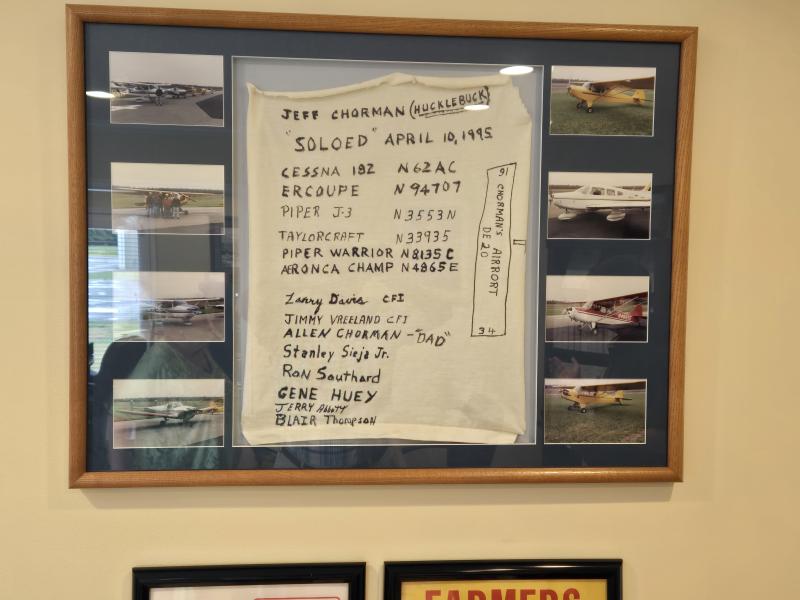 JEFF CHORMAN (HUCKLEBUCK)
"SOLOED" APRIL 10, 1995
CESSNA 182 N62AC
ERCOUPE N94707
PIPER J-3 N3553N
TAYLORCRAFT N33935
PIPER WARRIOR N8135C
AERONCA CHAMP N4865E
16
CHORMAN'S AIRPORT
DE 20
34
Larry Davis CFI
JIMMY VREELAND CFI
ALLEN CHORMAN - "DAD"
Stanley Sieja Jr.
RON Southard
GENE HUEY
JERRY Abbott
BLAIR Thompson
FARMERS